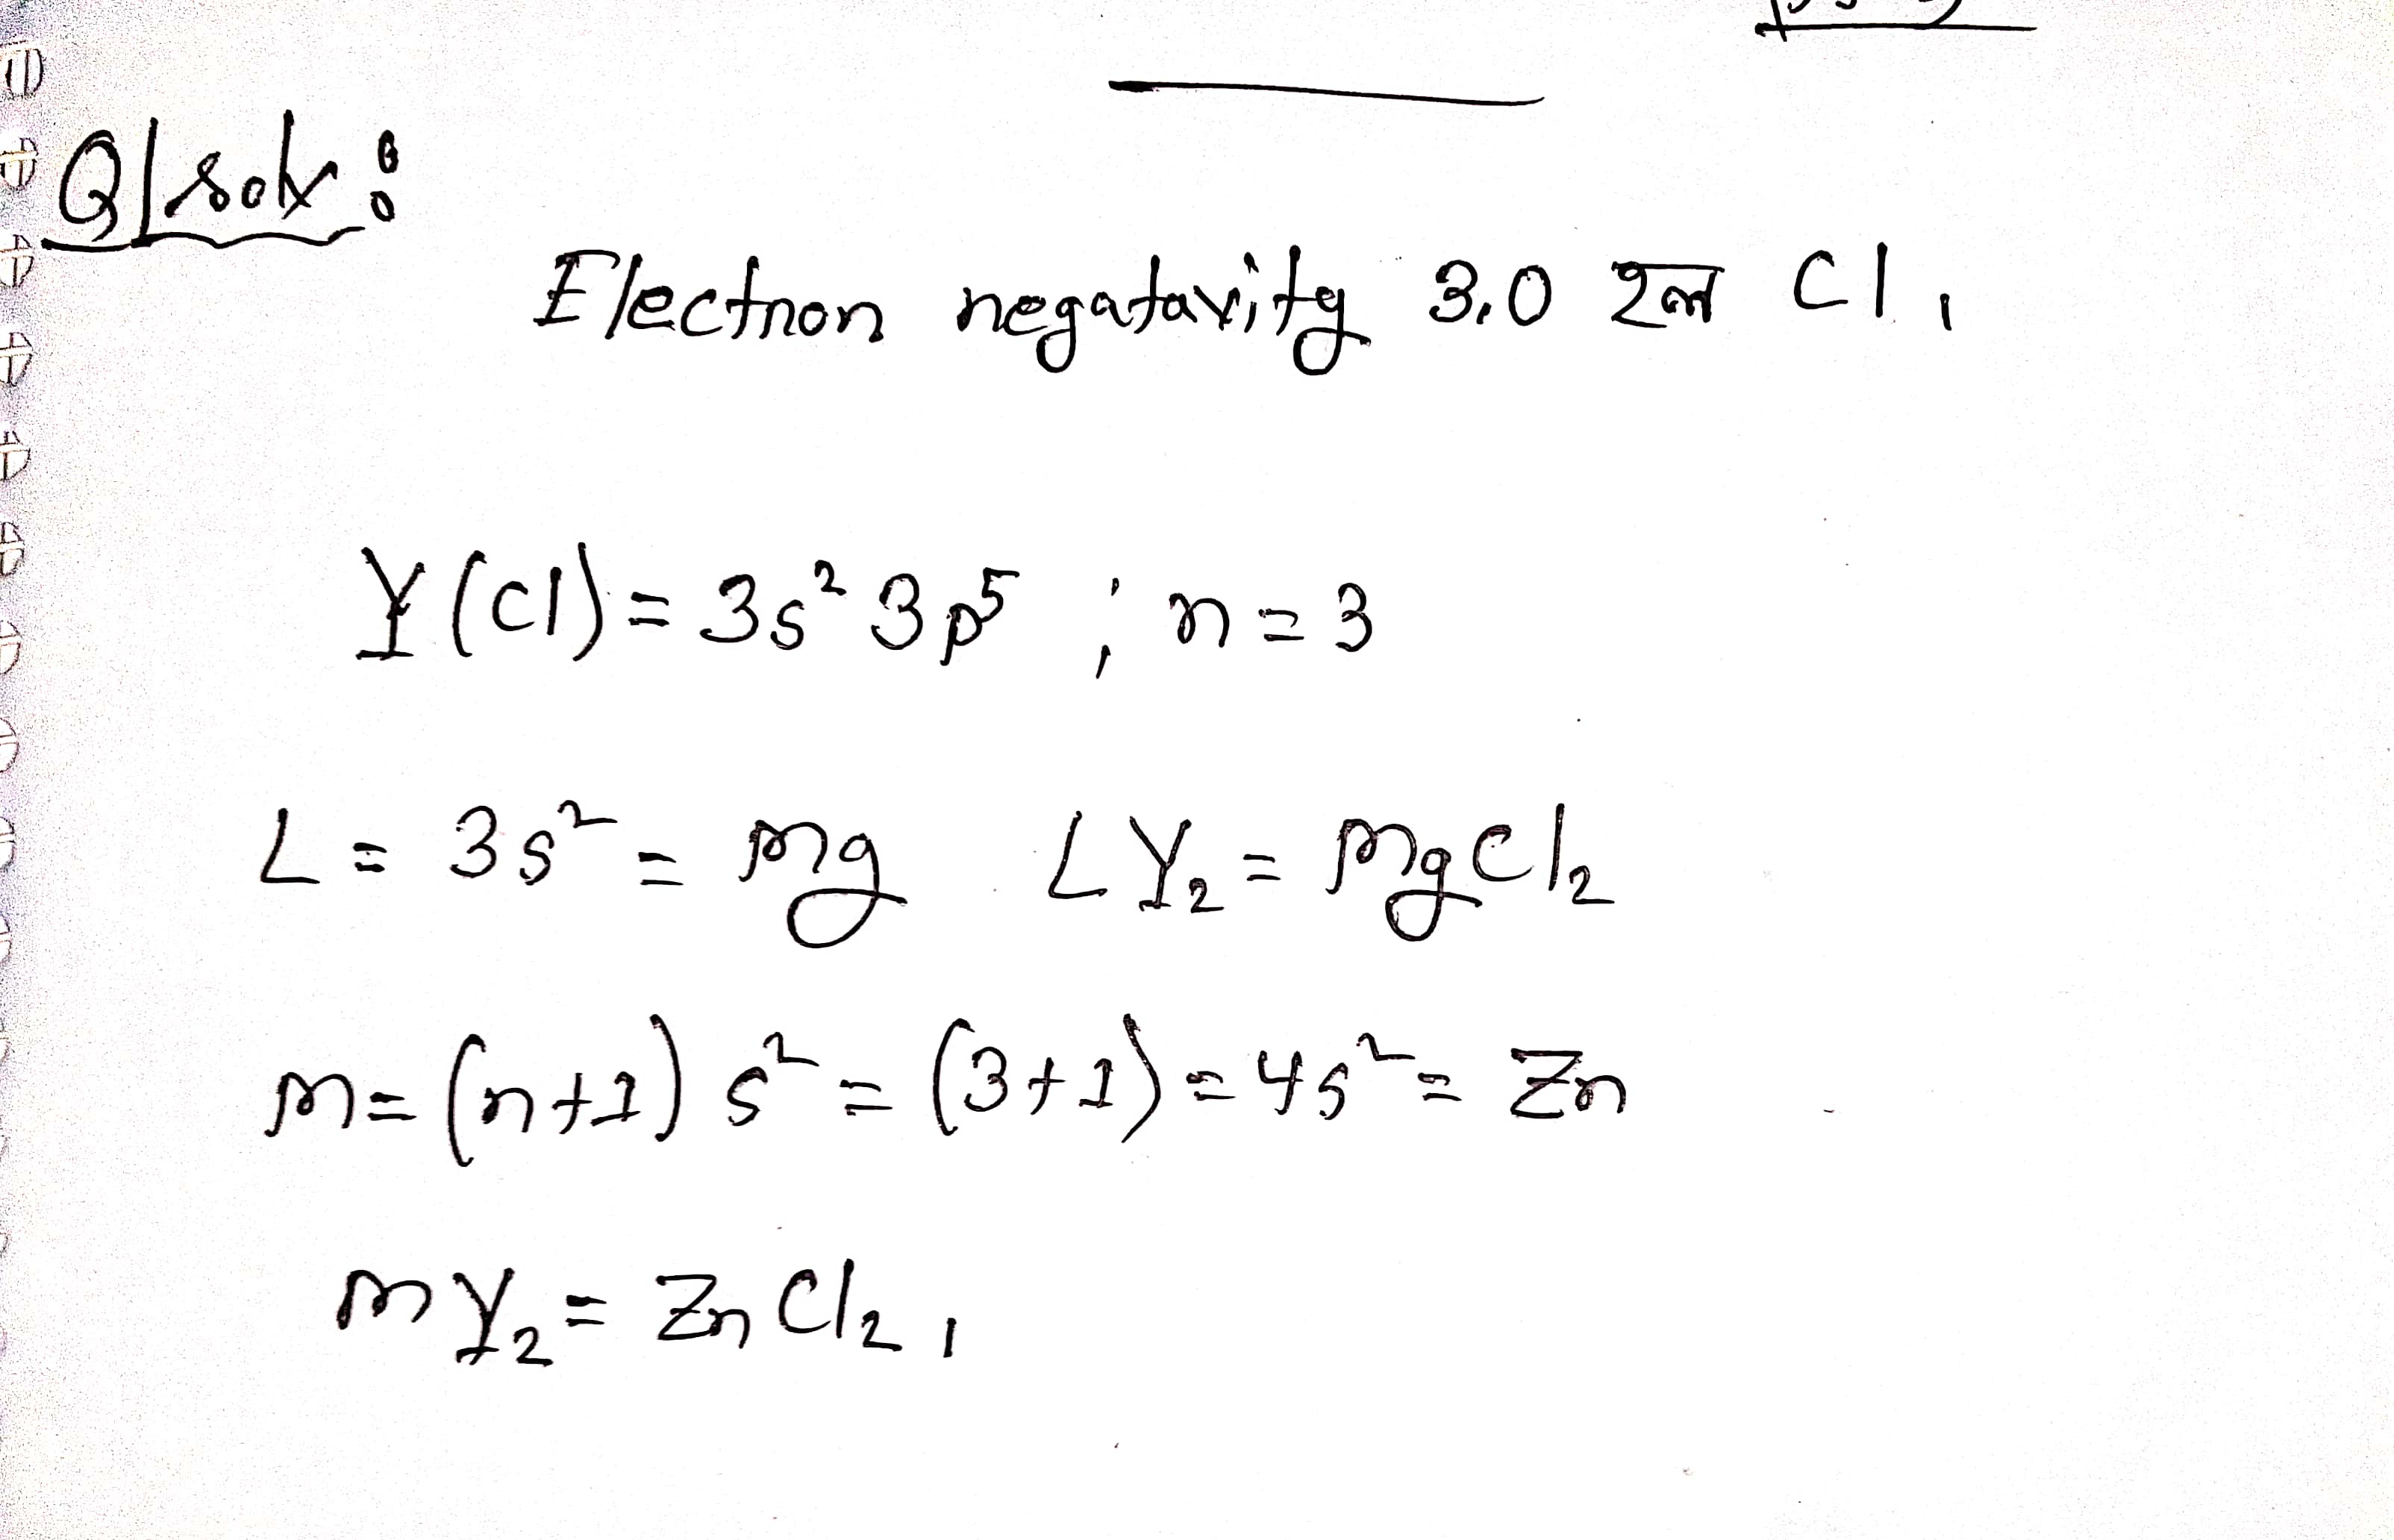 Q/solv:
Electron negatavity 3.0 হল Cl,
Y(Cl) = 3s² 3p⁵ ; n=3
L = 3s² = mg LY₂ = MgCl₂
m = (n+1) s² = (3+1) = 4s² = Zn
mY₂ = ZnCl₂,